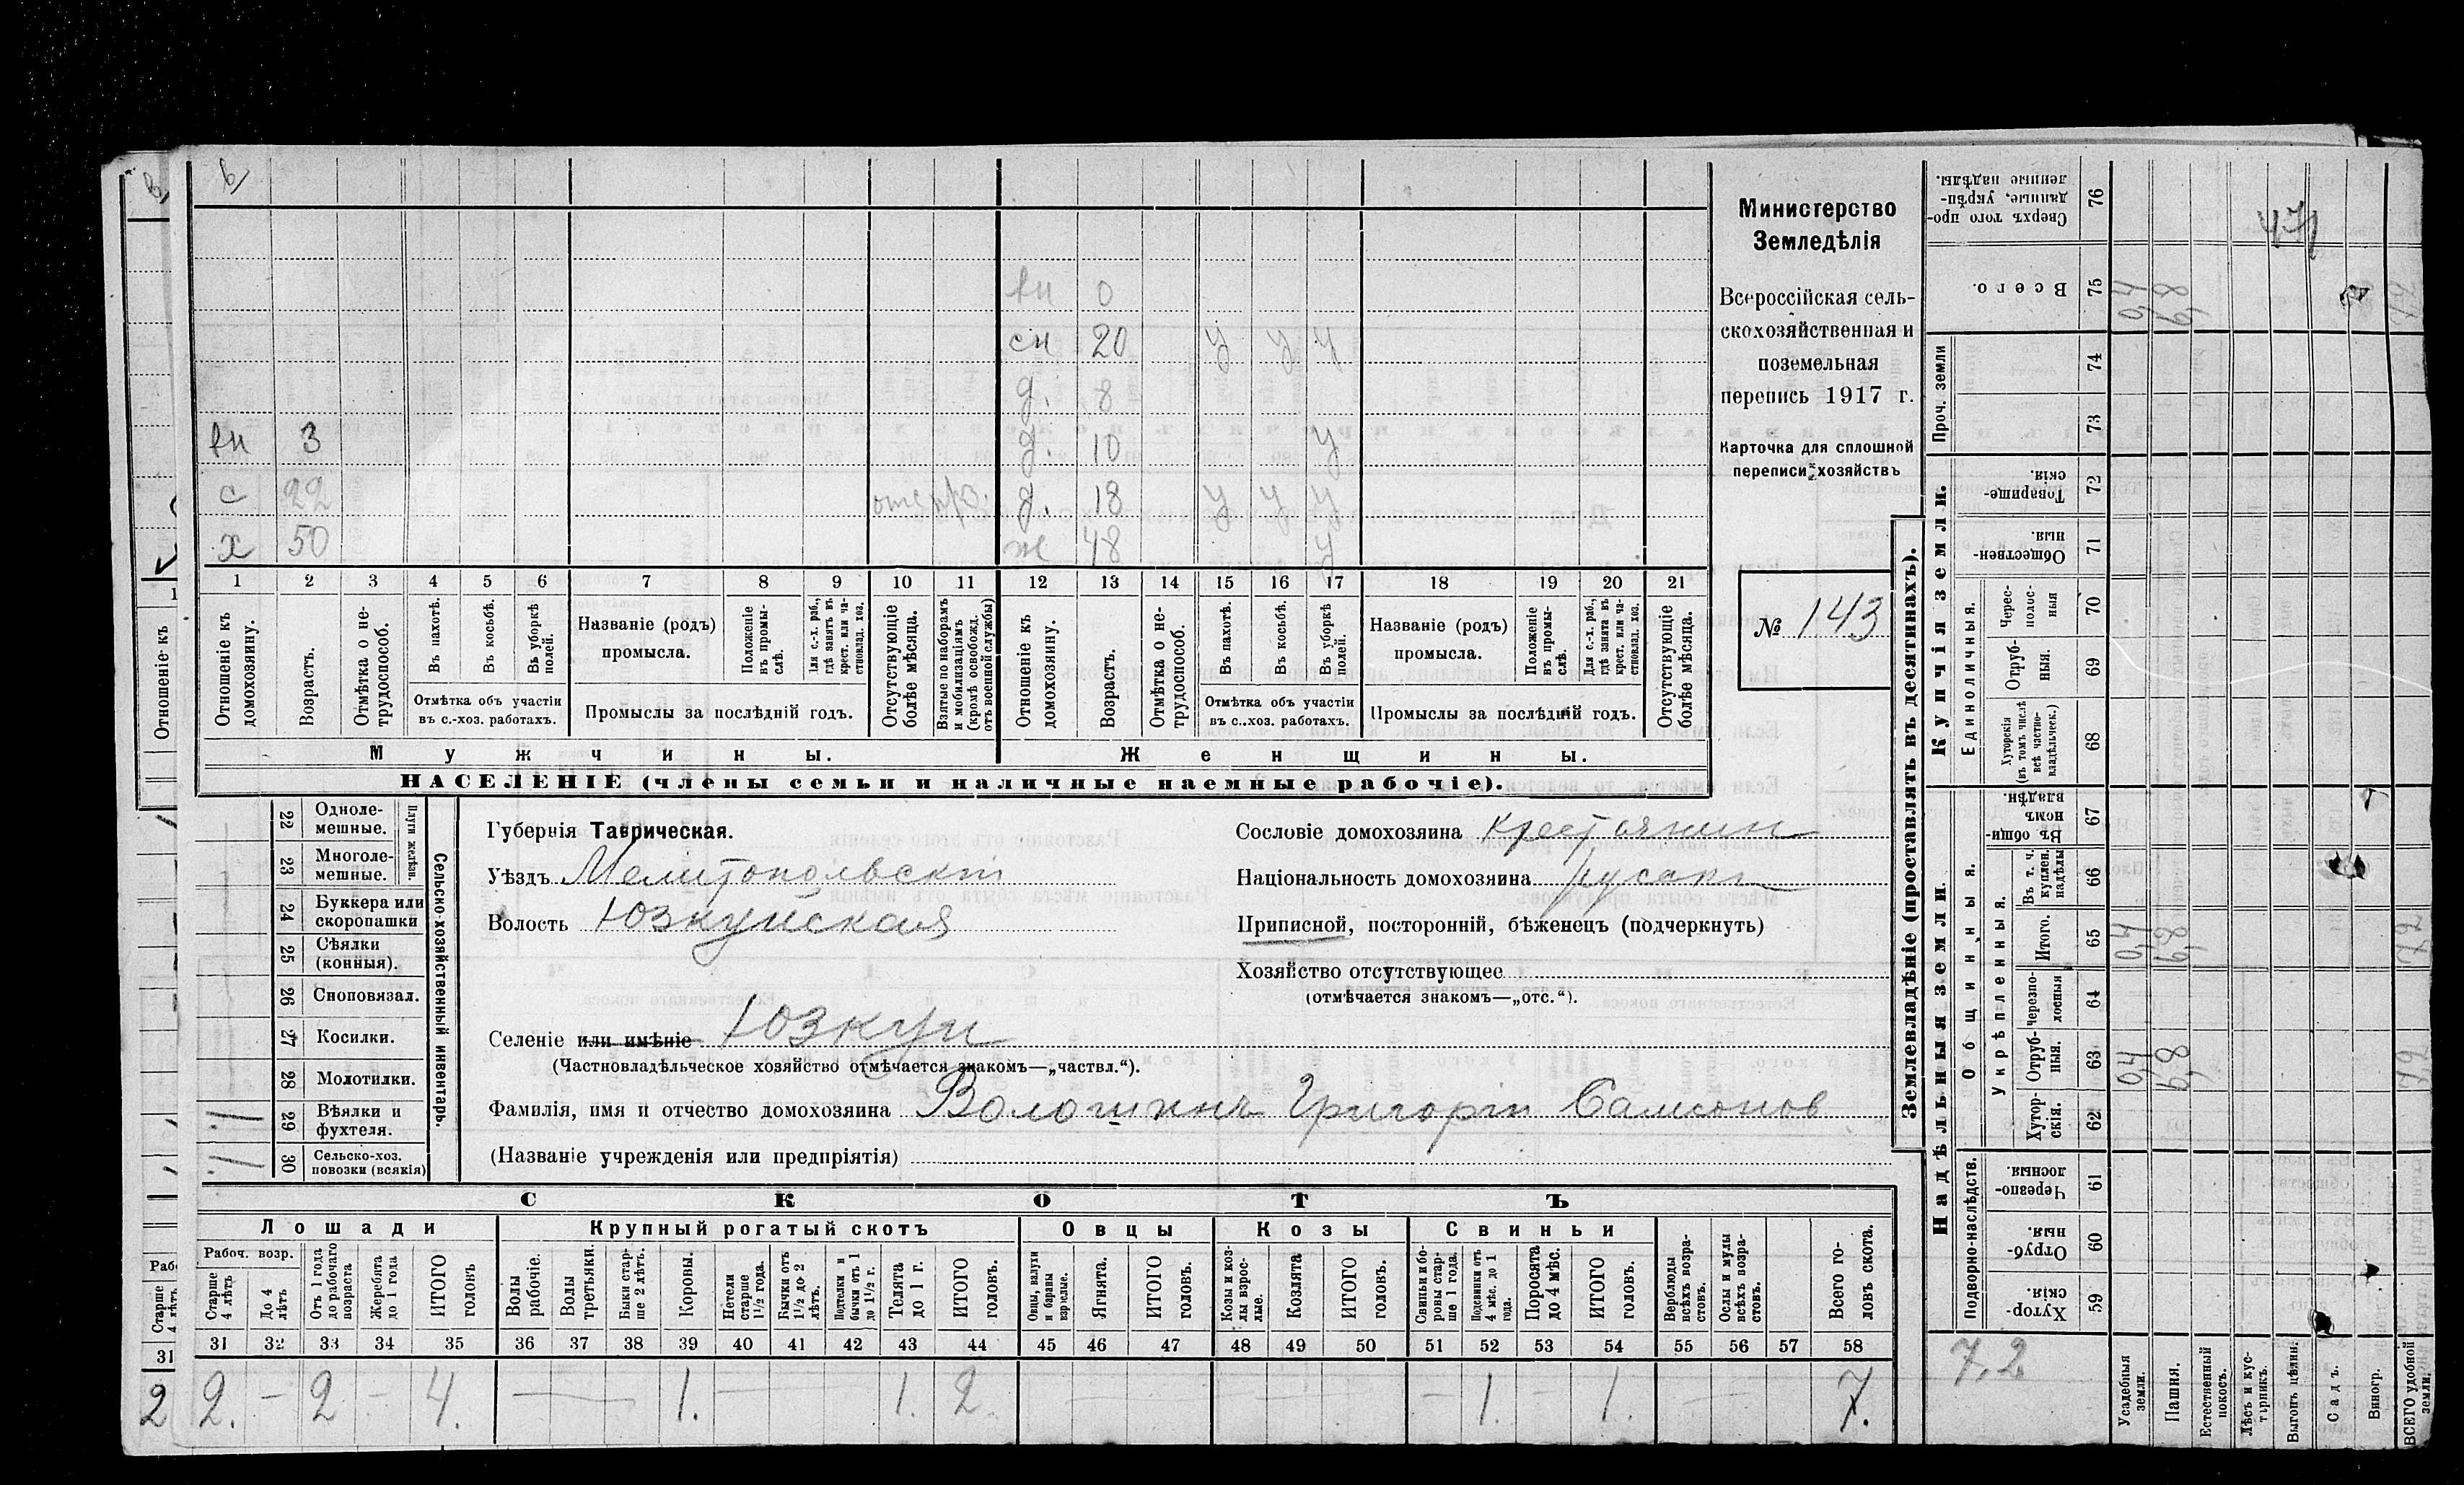 в/
в/
вн 0
сн 20 у у у
д. 8
вн 3 д. 10 у
с 22 отс д. 18 у у у
х 50 ж 48 у
1 2 3 4 5 6 7 8 9 10 11 12 13 14 15 16 17 18 19 20 21
Отношеніе къ домохозяину.
Возрастъ.
Отмѣтка о нетрудоспособ.
Въ пахотѣ.
Въ косьбѣ.
Въ уборкѣ полей.
Отмѣтка объ участіи
въ с.-хоз. работахъ.
Названіе (родъ)
промысла.
Положеніе въ промыслѣ.
Для с.-х. раб., гдѣ занятъ въ крест. или частновлад. хоз.
Промыслы за послѣдній годъ.
Отсутствующіе болѣе мѣсяца.
Взятые по наборамъ и мобилизаціямъ (кромѣ освобожд. отъ военной службы)
Отношеніе къ домохозяину.
Возрастъ.
Отмѣтка о нетрудоспособ.
Въ пахотѣ.
Въ косьбѣ.
Въ уборкѣ полей.
Отмѣтка объ участіи
въ с.-хоз. работахъ.
Названіе (родъ)
промысла.
Положеніе въ промыслѣ.
Для с.-х. раб., гдѣ занята въ крест. или частновлад. хоз.
Промыслы за послѣдній годъ.
Отсутствующіе болѣе мѣсяца.
Мужчины.
Женщины.
НАСЕЛЕНІЕ (члены семьи и наличные наемные рабочіе).
Министерство
Земледѣлія
Всероссійская сель-
скохозяйственная и
поземельная
перепись 1917 г.
Карточка для сплошной
переписи хозяйствъ
№ 143
22 Однолемешные.
23 Многолемешные.
Плуги желѣзн.
24 Буккера или скоропашки
25 Сѣялки (конныя).
26 Сноповязал.
27 Косилки.
28 Молотилки.
29 Вѣялки и фухтеля.
30 Сельско-хоз. повозки (всякія)
Сельско-хозяйственный инвентарь.
Губернія Таврическая.
Уѣздъ Мелитопольскій
Волость Юзкуйская
Селеніе или имѣніе Юзкуи
(Частновладѣльческое хозяйство отмѣчается знакомъ—„частвл.“).
Фамилія, имя и отчество домохозяина Волошинъ Григорій Самсонов
(Названіе учрежденія или предпріятія)
Сословіе домохозяина крестьянин
Національность домохозяина русакъ
Приписной, посторонній, бѣженец (подчеркнуть)
Хозяйство отсутствующее
(отмѣчается знакомъ—„отс.“).
СКОТЪ
Лошади
Крупный рогатый скотъ
Овцы
Козы
Свиньи
Рабоч. возр.
Старше 4 лѣтъ
До 4 лѣтъ
Отъ 1 года до рабочаго возраста
Жеребята до 1 года
ИТОГО головъ
Волы рабочіе.
Волы третьяки.
Быки старше 2 лѣтъ.
Коровы.
Нетели старше 1½ года.
Бычки отъ 1½ до 2 лѣтъ.
Подтелки и бычки отъ 1 до 1½ г.
Телята до 1 г.
ИТОГО головъ.
Овцы, валухи и бараны взрослые.
Ягнята.
ИТОГО головъ.
Козы и козлы взрослые.
Козлята
ИТОГО головъ.
Свиньи и боровы старше 1 года.
Подсвинки отъ 4 мѣс. до 1 года.
Поросята до 4 мѣс.
ИТОГО головъ.
Верблюды всѣхъ возрастовъ.
Ослы и мулы всѣхъ возрастовъ.
Всего головъ скота.
31 32 33 34 35 36 37 38 39 40 41 42 43 44 45 46 47 48 49 50 51 52 53 54 55 56 57 58
2. – 2 – 4. — — 1. — 1. 2. — — — — – 1. – 1. — 7.
Землевладѣніе (проставлять въ десятинахъ).
Купчія земли.
Надѣльныя земли.
76 Сверхъ того проданные, укрѣпленные надѣлы.
75 Всего. 04 6,8
Проч. земли
74
73
72 Товарищескія.
71 Общественныя.
Единоличныя.
70 Чересполосныя
69 Отрубныя.
68 Хуторскія (въ томъ числѣ всѣ частновладѣльческ.)
Общинныя.
Укрѣпленныя.
67 Въ общинномъ владѣн.
66 Въ т. ч. куплен. надѣлы
65 Итого. 04 6,8 7,2
64 Черезполосныя
63 Отрубныя. 04 6,8 7,2
62 Хуторскія.
Подворно-наслѣдств.
61 Черезполосныя.
60 Отрубныя.
59 Хуторскія.
7,2
Усадебныя земли.
Пашня.
Естественный покосъ.
Лѣсъ и кустарникъ.
Выгонъ цѣлин.
Садъ.
Виногр.
ВСЕГО удобной земли.
Отношеніе къ
Старше 4 лѣтъ
31
2